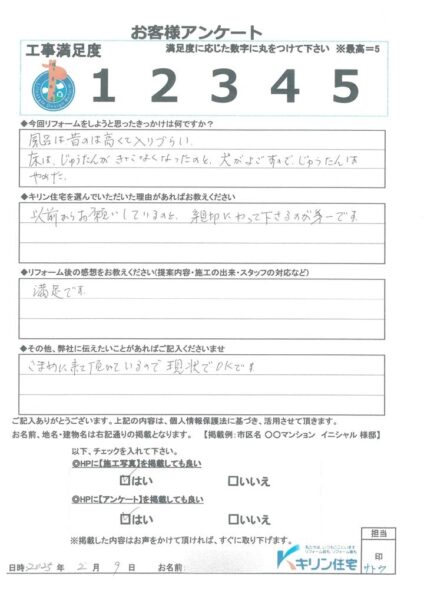 お客様アンケート
工事満足度
満足度に応じた数字に丸をつけて下さい ※最高＝5
1 2 3 4 5
◆今回リフォームをしようと思ったきっかけは何ですか？
風呂は昔のは高くて入りづらい。
床は、じゅうたんがきたなくなったのと、犬がよごすので、じゅうたんは
やめた。
◆キリン住宅を選んでいただいた理由があればお教えください
以前からお願いしているのと、親切にやって下さるのが第一です。
◆リフォーム後の感想をお教えください(提案内容・施工の出来・スタッフの対応など)
満足です。
◆その他、弊社に伝えたいことがあればご記入くださいませ
こまめに来て頂いているので現状でOKです。
ご記入ありがとうございます。上記の内容は、個人情報保護法に基づき、活用させて頂きます。
お名前、地名・建物名は右記通りの掲載となります。 【掲載例：市区名 〇〇マンション イニシャル 様邸】
以下、チェックを入れて下さい。
◎HPに【施工写真】を掲載しても良い
☑はい □いいえ
◎HPに【アンケート】を掲載しても良い
☑はい □いいえ
※掲載した内容はお声をかけて頂ければ、すぐに取り下げます。
担当
印
サトウ
キリン住宅
日時 2025 年 2 月 9 日 お名前: